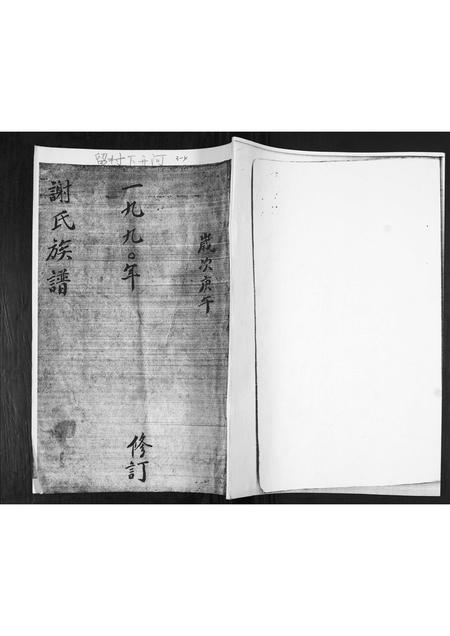 留村下丹河
歲次庚午
一九九〇年
修訂
謝氏族譜